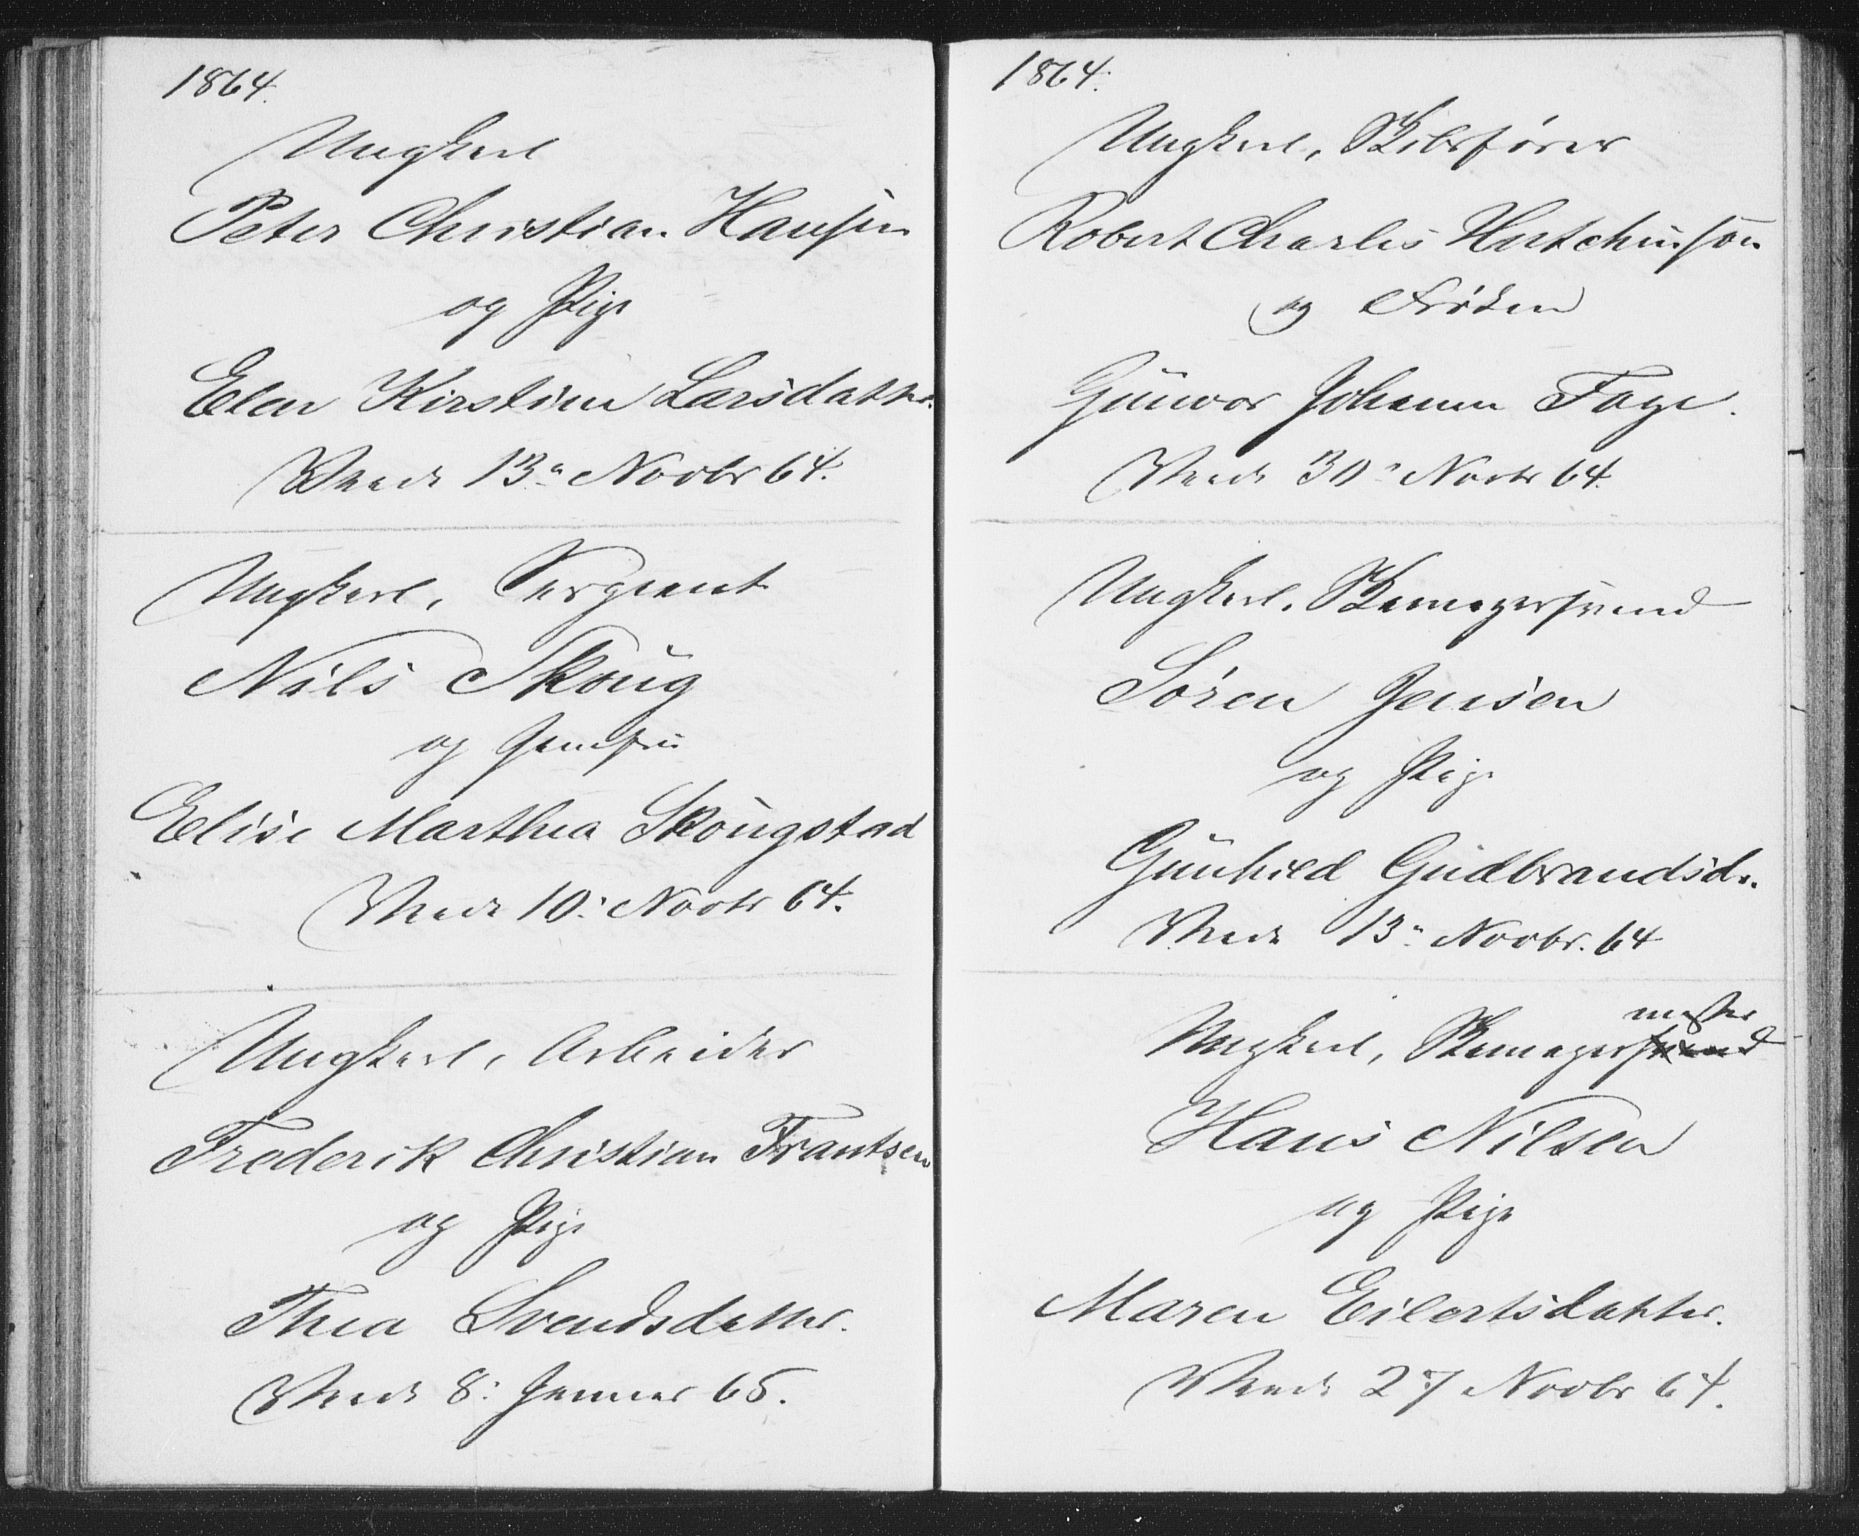 1864.
Ungkarl
Peter Christian Hansen
og Pige
Elen Kirstine Larsdatter.
Viede 13de Novbr 64.
Ungkarl, Sergeant
Nils Skoug
og Jomfru
Elise Marthea Skougstad
Viede 10: Novbr 64.
Ungkarl, Arbeider
Frederik Christian Frantsen
og Pige
Thea Svendsdatter.
Viede 8: Januar 65.
1864.
Ungkarl, Skibsfører
Robert Charles Hutchinson
og Frøken
Gunvor Johanne Faye.
Viede 30: Novbr 64.
Ungkarl, Skomagersvend
Søren Jensen
og Pige
Gunhild Gudbrandsd.
Viede 13: Novbr. 64
mester
Ungkarl, Skomagersvend
Hans Nilsen
og Pige
Maren Eilertsdatter.
Viede 27 Novbr 64.